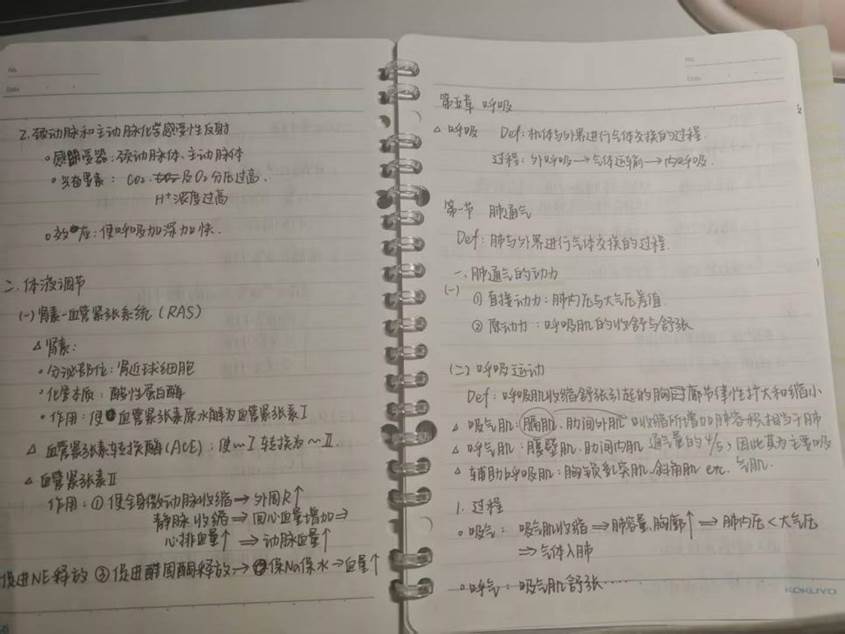 No.
Date
2.颈动脉和主动脉化学感受性反射
感受器:颈动脉体、主动脉体
CO2 及O2分压过高、
H⁺浓度过高
效应:使呼吸加深加快.
二、体液调节
(一)肾素-血管紧张系统(RAS)
△肾素:
·分泌部位:肾近球细胞
·化学本质:酸性蛋白酶
·作用:使血管紧张素原水解为血管紧张素Ⅰ
△血管紧张素转换酶(ACE):使~Ⅰ转换为~Ⅱ
△血管紧张素Ⅱ
作用:①使全身微动脉收缩⇒外周R↑
静脉收缩⇒回心血量增加⇒
心排血量↑⇒动脉血量↑
促进NE释放 ③促进醛固酮释放→保Na保水→血量↑
No.
Date
第五章 呼吸
△呼吸 Def:机体与外界进行气体交换的过程.
过程:外呼吸→气体运输→内呼吸.
第一节 肺通气
Def:肺与外界进行气体交换的过程.
一、肺通气的动力
(一) ①直接动力:肺内压与大气压差值
②原动力:呼吸肌的收缩与舒张
(二)呼吸运动
Def:呼吸肌收缩舒张引起的胸廓节律性扩大和缩小
△吸气肌:膈肌、肋间外肌 (收缩所增加肺容积相当于肺
△呼气肌:腹壁肌、肋间内肌 通气量的4/5,因此其为主要吸
△辅助呼吸肌:胸锁乳突肌、斜角肌 etc. 气肌.
1.过程
·吸气:吸气肌收缩⇒肺容量、胸廓↑⇒肺内压<大气压
⇒气体入肺
·呼气:吸气肌舒张……
KOKUYO